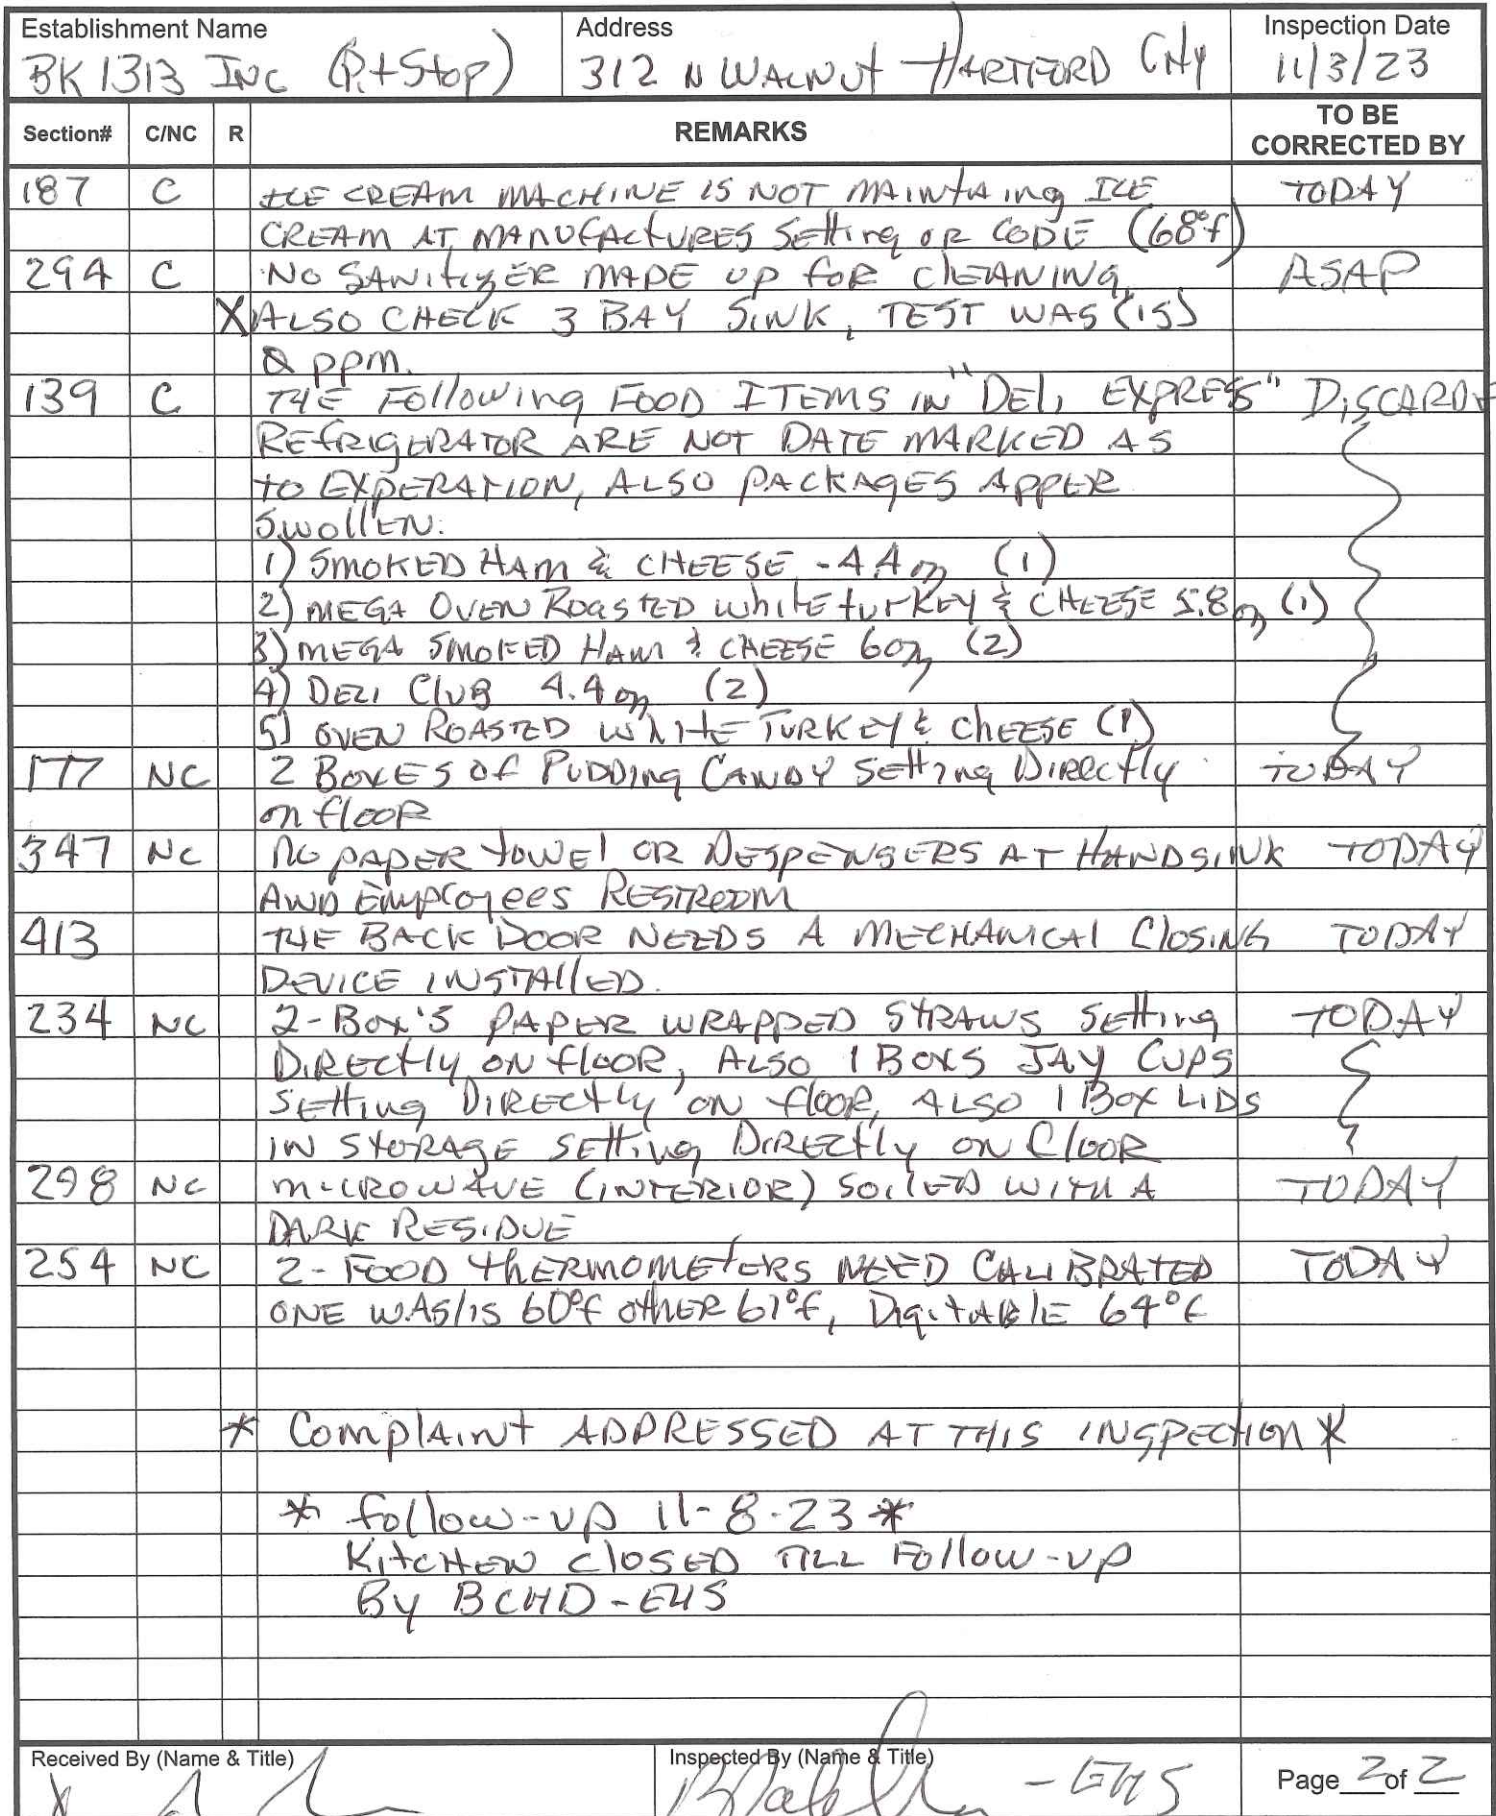 Establishment Name Address Inspection Date
BK 1313 INC (Pit Stop) 312 N WALNUT HARTFORD City 11/3/23
Section# C/NC R REMARKS TO BE CORRECTED BY
187 C ICE CREAM MACHINE IS NOT MAINTAing ICE TODAY
CREAM AT MANUFACTURES Setting OR CODE (68°f)
294 C NO SANITIZER MADE UP FOR CLEANING, ASAP
X ALSO CHECK 3 BAY SINK, TEST WAS (is)
Q ppm.
139 C THE Following FOOD ITEMS IN "DELI EXPRESS" DISCARDE
REFRIGERATOR ARE NOT DATE MARKED AS
TO EXPERATION, ALSO PACKAGES APPER
SWOllEN.
1) SMOKED HAM & CHEESE - 4.4 oz (1)
2) MEGA OVEN ROASTED White turKEY & CHEESE 5.8 oz (1)
3) MEGA SMOKED HAM & CHEESE 6oz (2)
4) DELI CLUB 4.4 oz (2)
5) OVEN ROASTED WHITE TURKEY & CHEESE (1)
177 NC 2 BOXES Of PUDDING CANDY Setting DIRECtly TODAY
on flOOR
347 NC NO PAPER TOWEl OR DESPENSERS AT HANDSINK TODAY
AND EMPLOYEES RESTROOM
413 THE BACK DOOR NEEDS A MECHANICAL CLOSING TODAY
DEVICE INSTALLED.
234 NC 2-BOX'S PAPER WRAPPED STRAWS SETting TODAY
DIRECtly ON flOOR, ALSO 1 BOXS JAY CUPS
SETting DIRECTLY ON flOOR, ALSO 1 BOX LIDS
IN STORAGE SETting DIRECTLY ON flOOR
298 NC MICROWAVE (INTERIOR) SOILED WITH A TODAY
DARK RESIDUE
254 NC 2-FOOD tHERMOMETERS NEED CALIBRATED TODAY
ONE WAS/IS 60°f OTHER 61°f, DigitABLE 64°f
* COMPLAINT ADDRESSED AT THIS INSPECTION *
* follow-up 11-8-23 *
KITCHEN CLOSED TILL FOLLOW-UP
By BCHD-EHS
Received By (Name & Title) Inspected By (Name & Title) - EHS Page 2 of 2